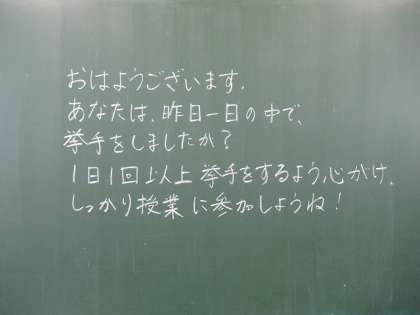 おはようございます.
あなたは、昨日一日の中で、
挙手をしましたか？
1日1回以上 挙手をするよう心がけ、
しっかり授業に参加しようね！